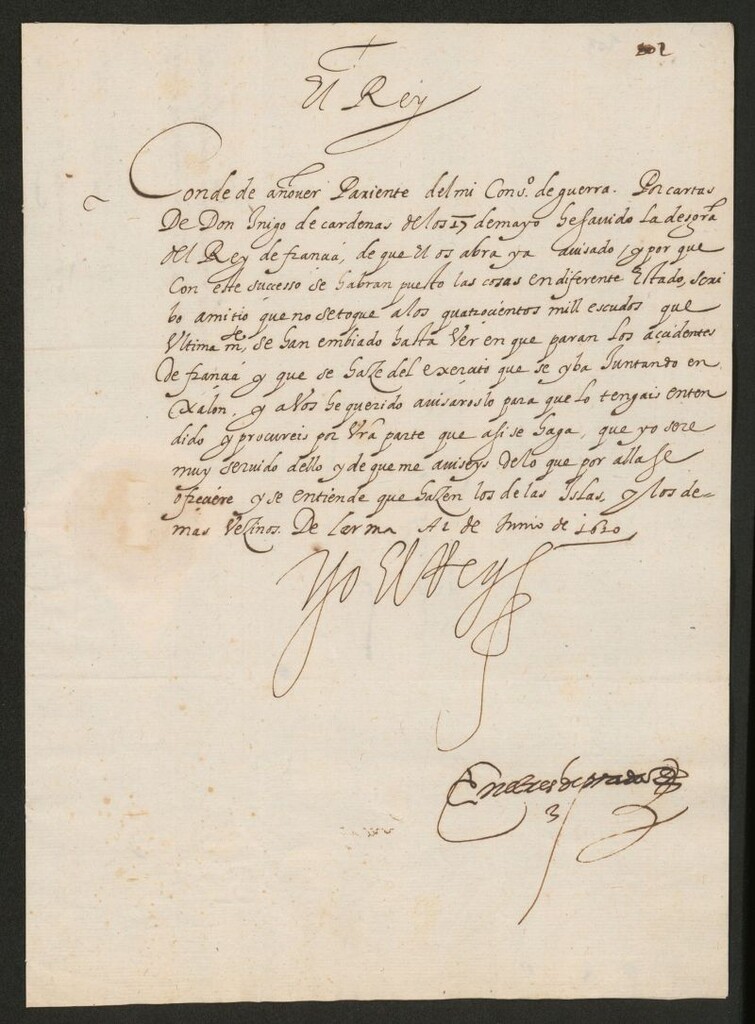 202
El Rey
Conde de añover Pariente del mi Cons.º de guerra. Por cartas
De Don Inigo de cardenas de los 17 de mayo he savido la desgrã
del Rey de françia, de que el os abra ya avisado, y por que
Con este successo se habran puesto las cosas en diferente Estado, scri
bo a mi tio que no se toque a los quatrocientos mill escudos que
Ultimam.te, se han embiado hasta Ver en que paran los accidentes
de françia y que se haze del exercito que se yba Juntando en
Xalon, y a Vos he querido avisaroslo para que lo tengais enten
dido y procureis por Vrã parte que asi se haga, que yo sere
muy servido dello y de que me aviseys de lo que por alla se
ofreciere y se entiende que hazen los de las Islas, y los de-
mas Vezinos. De lerma A 2 de Junio de 1610
Yo El Rey
de prada